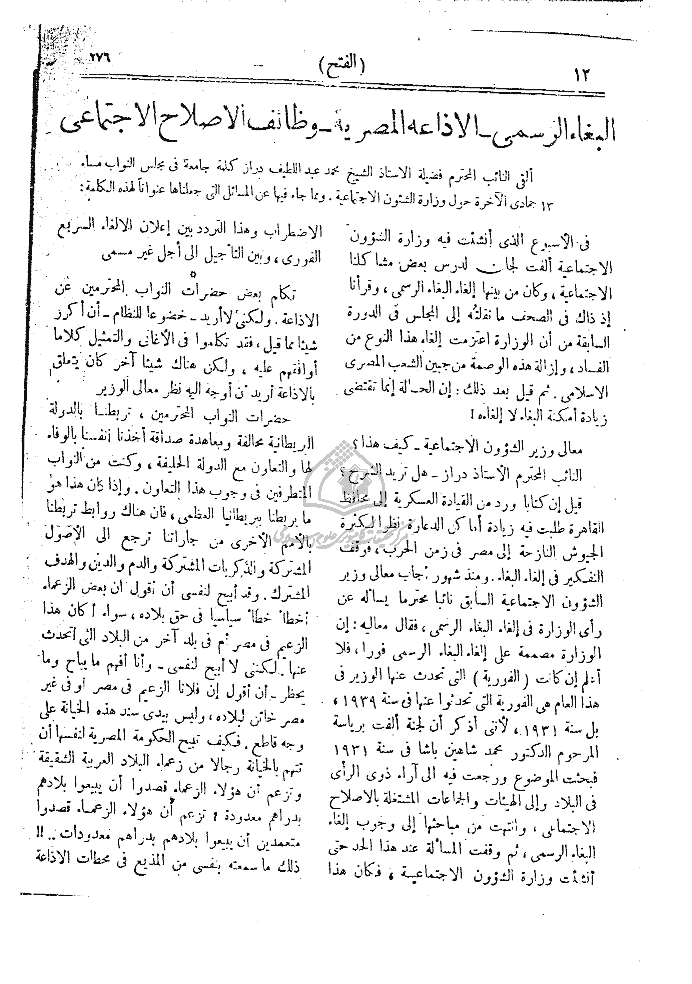 ١٢
(الفتح)
٢٧٦
البغاء الرسمى ـ الاذاعه المصرية ـ وظائف الاصلاح الاجتماعى
ألقى النائب المحترم فضيلة الاستاذ الشيخ محمد عبد اللطيف دراز كلمة جامعة فى مجلس النواب مساء
١٣ جمادى الآخرة حول وزارة الشئون الاجتماعية . ومما جاء فيها عن المسائل التى جعلناها عنواناً لهذه الكلمة :
فى الاسبوع الذى أنشئت فيه وزارة الشؤون
الاجتماعية ألفت لجان لدرس بعض مشاكلنا
الاجتماعية ، وكان من بينها إلغاء البغاء الرسمى ، وقرأنا
إذ ذاك فى الصحف ما نقلته إلى المجلس فى الدورة
السابقة من أن الوزارة اعتزمت إلغاء هذا النوع من
الفساد ، وإزالة هذه الوصمة من جبين الشعب المصرى
الاسلامى . ثم قيل بعد ذلك : إن الحالة إنما تقتضى
زيادة أمكنة البغاء لا إلغاءه !
معالى وزير الشؤون الاجتماعية ـ كيف هذا ؟
النائب المحترم الاستاذ دراز ـ هل تريد الشرح ؟
قيل إن كتابا ورد من القيادة العسكرية إلى محافظ
القاهرة طلبت فيه زيادة أماكن الدعارة نظرا لكثرة
الجيوش النازحة إلى مصر فى زمن الحرب ، فوقف
التفكير فى إلغاء البغاء . ومنذ شهور أجاب معالى وزير
الشؤون الاجتماعية السابق نائبا محترما يسأله عن
رأى الوزارة فى إلغاء البغاء الرسمى ، فقال معاليه : إن
الوزارة مصممة على إلغاء البغاء الرسمى فورا ، فلا
أعلم إن كانت ( الفورية ) التى تحدث عنها الوزير فى
هذا العام هى الفورية التى تحدثوا عنها فى سنة ١٩٣٩ ،
بل سنة ١٩٣١ ، لأنى أذكر أن لجنة ألفت برياسة
المرحوم الدكتور محمد شاهين باشا فى سنة ١٩٣١
فبحثت الموضوع ورجعت فيه الى آراء ذوى الرأى
فى البلاد وإلى الهيئات والجماعات المشتغلة بالاصلاح
الاجتماعى ، وانتهت من مباحثها إلى وجوب إلغاء
البغاء الرسمى ، ثم وقفت المسألة عند هذا الحد حتى
أنشئت وزارة الشؤون الاجتماعية ، فكان هذا
الاضطراب وهذا التردد بين إعلان الالغاء السريع
الفورى ، وبين التأجيل الى أجل غير مسمى
تكلم بعض حضرات النواب المحترمين عن
الاذاعة . ولكنى لا أريد ـ خضوعا للنظام ـ أن أكرر
شيئا مما قيل ، فقد تكلموا فى الأغانى والتمثيل كلاما
أوافقهم عليه ، ولكن هناك شيئا آخر كان يتعلق
بالاذاعة أريد أن أوجه اليه نظر معالى الوزير
حضرات النواب المحترمين ، تربطنا بالدولة
البريطانية محالفة ومعاهدة صداقة أخذنا أنفسنا بالوفاء
لها والتعاون مع الدولة الحليفة ، وكنت من النواب
المتطرفين فى وجوب هذا التعاون . وإذا كان هذا هو
ما يربطنا ببريطانيا العظمى ، فان هناك روابط تربطنا
بالأمم الأخرى من جاراتنا ترجع الى الاصول
المشتركة والذكريات المشتركة والدم والدين والهدف
المشترك . وقد أبيح لنفسى أن أقول ان بعض الزعماء
أخطأ خطأ سياسيا فى حق بلاده ، سواء أكان هذا
الزعيم فى مصر أم فى بلد آخر من البلاد التى أتحدث
عنها . لكننى لا أبيح لنفسى ـ وأنا أفهم ما يباح وما
يحظر ـ أن أقول إن فلانا الزعيم فى مصر أو فى غير
مصر خائن لبلاده ، وليس بيدى سند هذه الخيانة على
وجه قاطع . فكيف تبيح الحكومة المصرية لنفسها أن
تتهم بالخيانة رجالا من زعماء البلاد العربية الشقيقة
وتزعم أن هؤلاء الزعماء قصدوا أن يبيعوا بلادهم
بدراهم معدودة ؟ تزعم أن هؤلاء الزعماء قصدوا
متعمدين أن يبيعوا بلادهم بدراهم معدودات .. !!
ذلك ما سمعته بنفسى من المذيع فى محطات الاذاعة